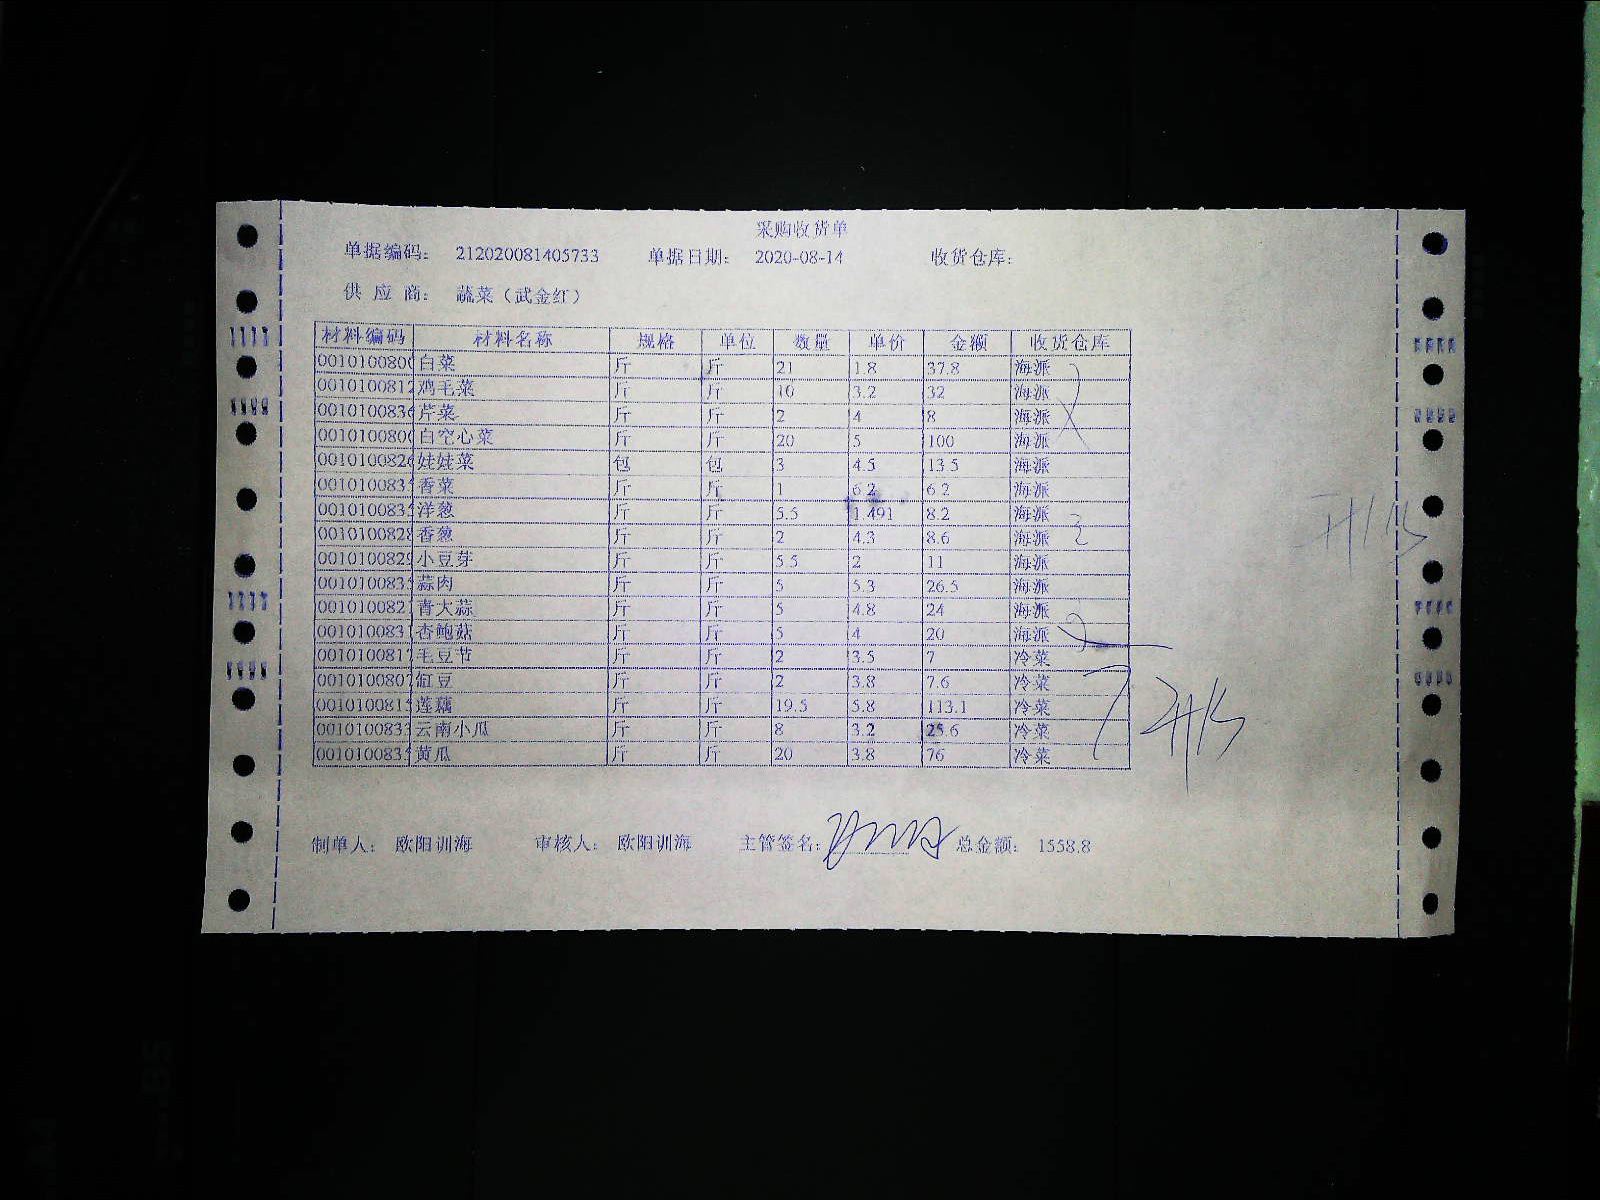 采购收货单
单据编码： 212020081405733 单据日期： 2020-08-14 收货仓库：
供 应 商： 蔬菜（武金红）
材料编码 材料名称 规格 单位 数量 单价 金额 收货仓库
0010100800 白菜 斤 斤 21 1.8 37.8 海派
0010100812 鸡毛菜 斤 斤 10 3.2 32 海派
001010083 芹菜 斤 斤 2 4 8 海派
0010100800 白空心菜 斤 斤 20 5 100 海派
001010082 娃娃菜 包 包 3 4.5 13.5 海派
001010083 香菜 斤 斤 1 6.2 6.2 海派
001010083 洋葱 斤 斤 5.5 1.491 8.2 海派
0010100828 香葱 斤 斤 2 4.3 8.6 海派
001010082 小豆芽 斤 斤 5.5 2 11 海派
001010083 蒜肉 斤 斤 5 5.3 26.5 海派
001010082 青大蒜 斤 斤 5 4.8 24 海派
001010083 杏鲍菇 斤 斤 5 4 20 海派
001010081 毛豆节 斤 斤 2 3.5 7 冷菜
0010100807 缸豆 斤 斤 2 3.8 7.6 冷菜
001010081 莲藕 斤 斤 19.5 5.8 113.1 冷菜
001010083 云南小瓜 斤 斤 8 3.2 25.6 冷菜
001010083 黄瓜 斤 斤 20 3.8 76 冷菜
制单人： 欧阳训海 审核人： 欧阳训海 主管签名： 总金额： 1558.8